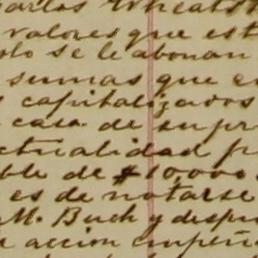 Carlos Wheatst
valores que est
olo se le abonan
sumas que en
capitalizados
casa de supr
ctualidad p
ble de $10,000
es de notarse
M. Buch y despu
accion empeñ